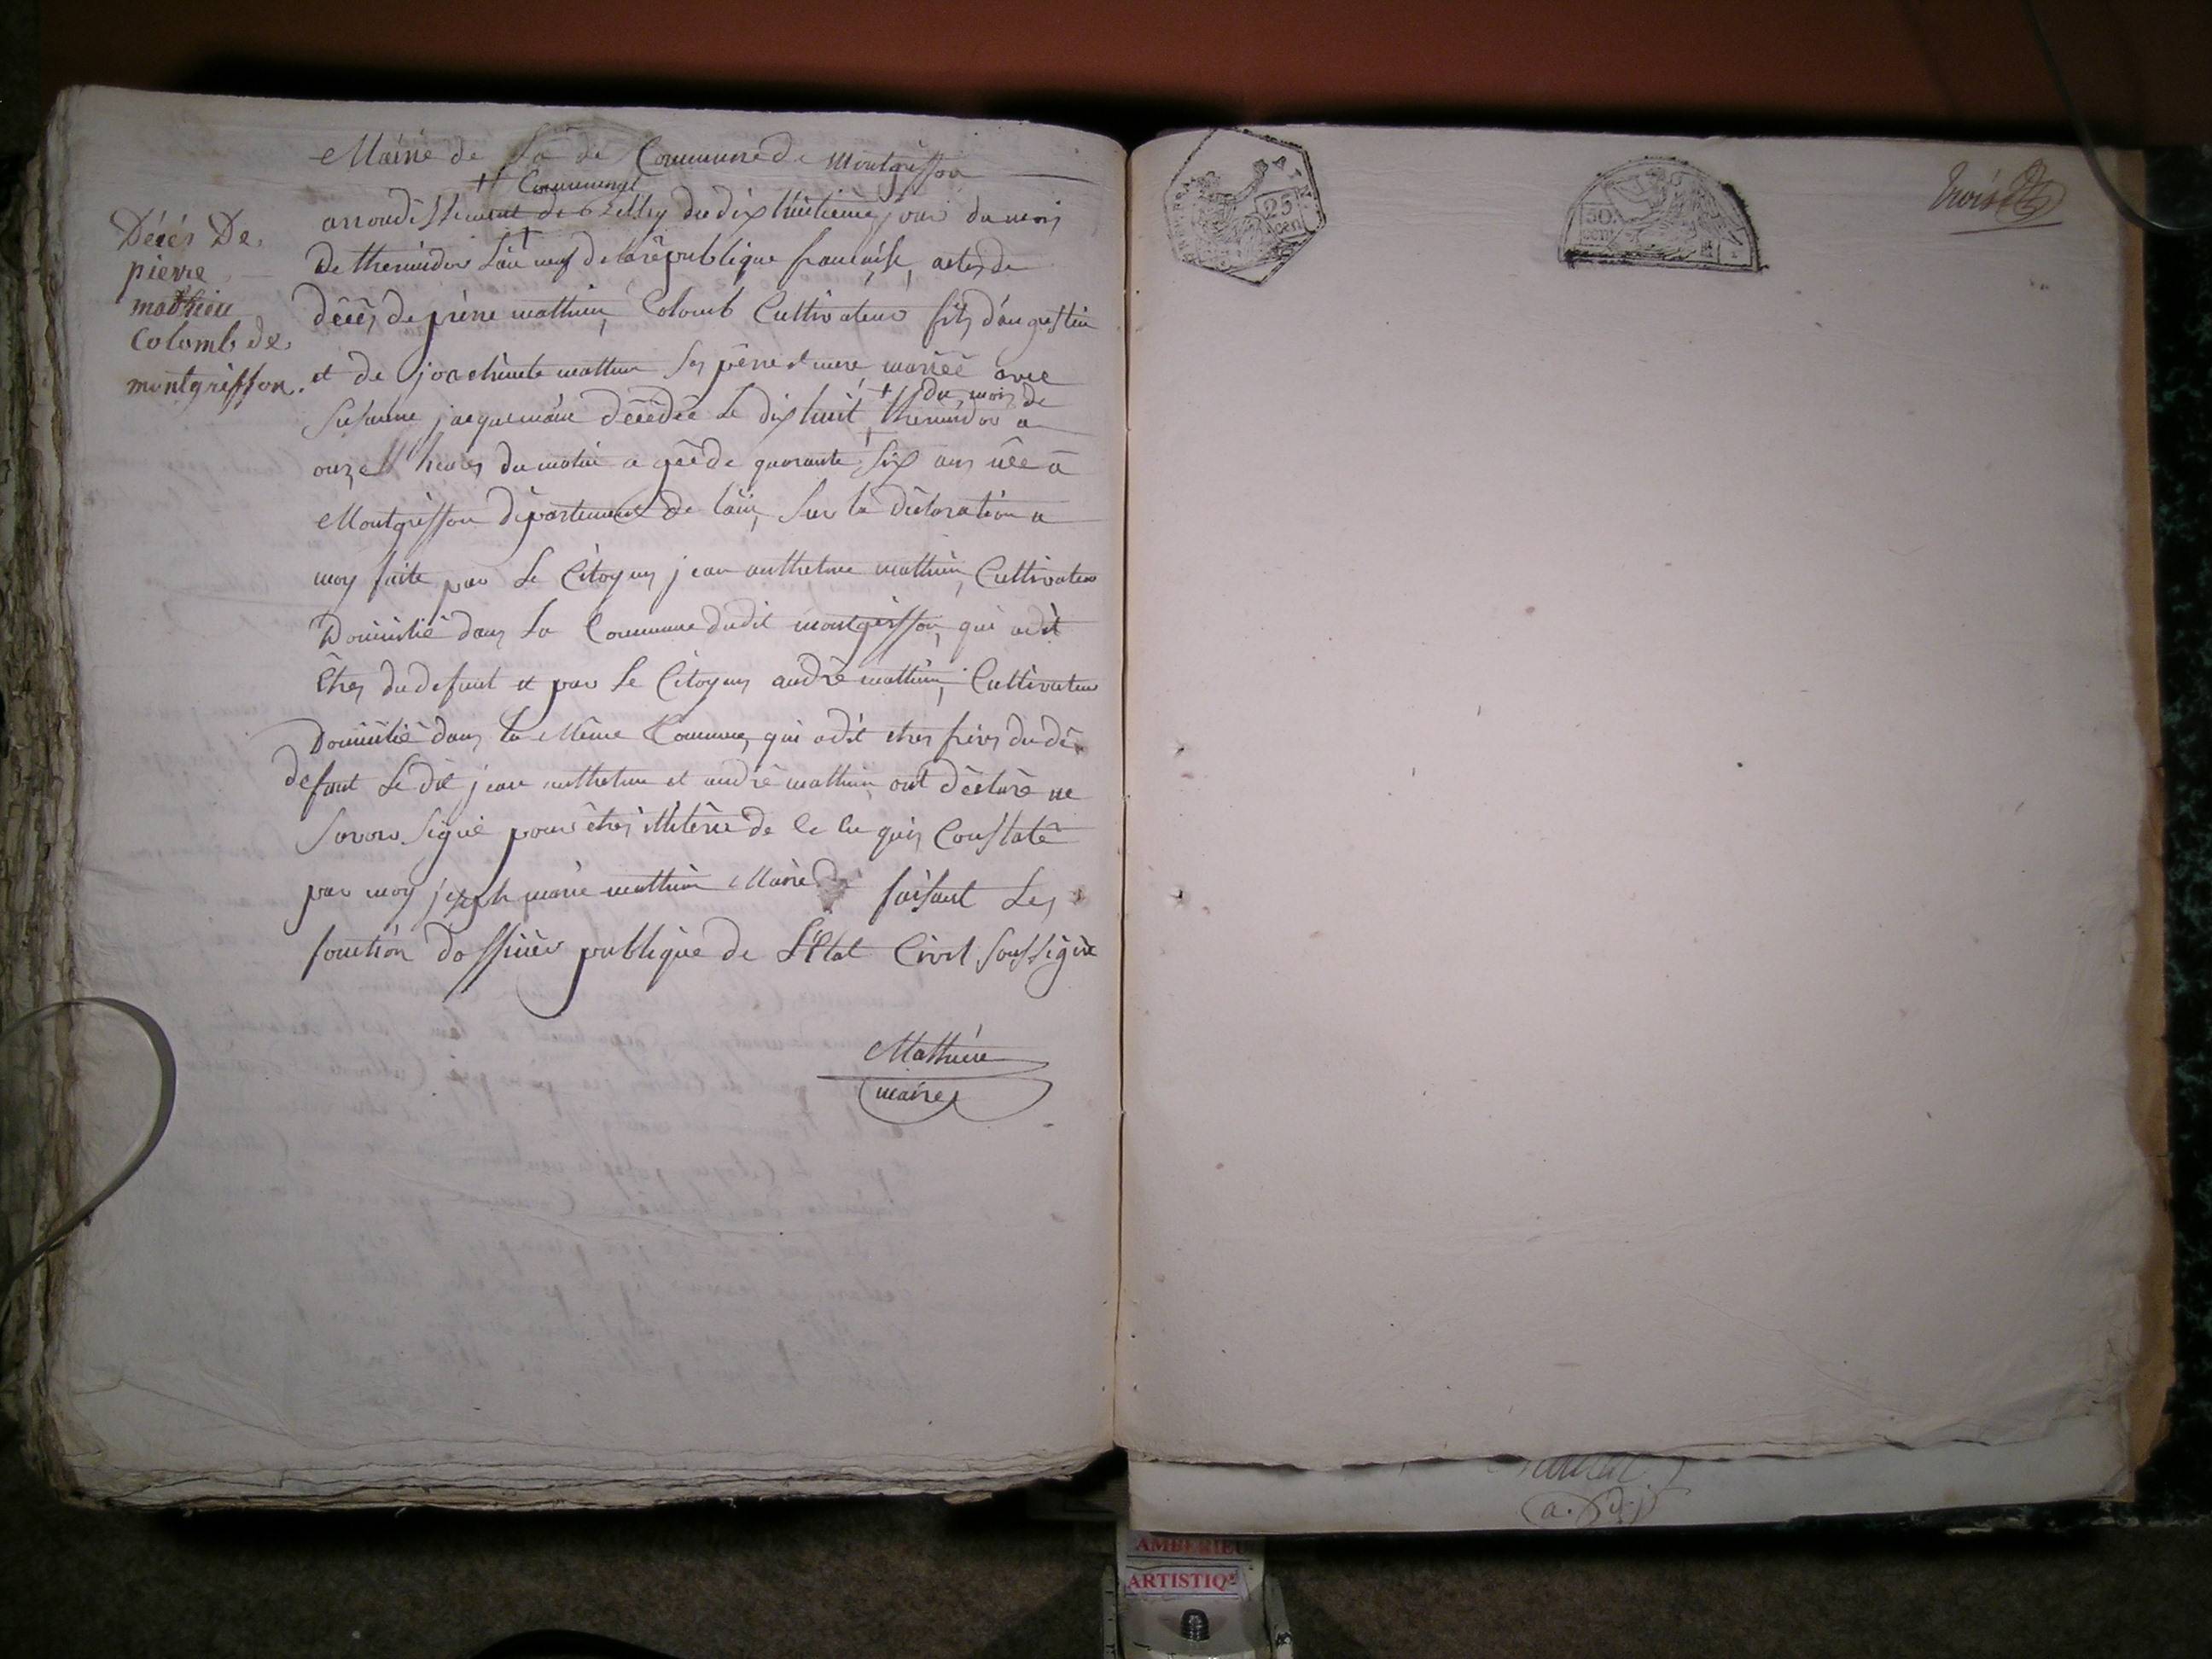 Mairie de La de Commune de Montgriffon
Communal
arrondissement de Belley du dix huitième jour du mois
De thermidor L'an neuf de la republique française, actes de
Décès De
pierre
mathieu
Colomb de
montgriffon.
décès de pierre mathieu Colomb Cultivateur fils d'augustin
et de joachimte mathieu ses père et mere mariéé avec
du mois de
Susanne jacquemain décédéé Le dix huit thermidor a
onze heures du matin agéé de quarante six ans néé a
Montgriffon département de lain, Sur la déclaration a
moy faite par Le Citoyen jean anthelme mathieu, Cultivateur
Domicilié dans La Commune dudit montgriffon, qui a dit
êtres du defunt et par Le Citoyen andré mathieu, Cultivateur
Domicilié dans la Même Commune, qui a dit etres frères du dé
defunt Le dit jean anthelme et andré mathieu ont déclaré ne
Savoir Signé pour êtres illitéré de Ce Constaté
par moy joseph marie mathieu Maire faisant Les
fonction d'officier publique de L'Etat Civil soussigné
Mathieu
maire
25
cen
50
cent
trois
AMBERIEU
ARTISTIQ